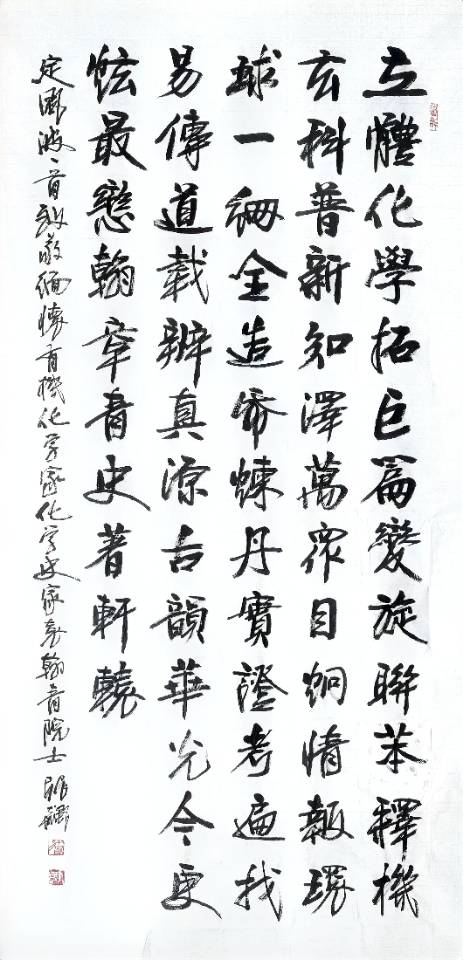 立體化學拓巨篇變旋聯苯釋機
玄科普新知澤萬眾目炯情報環
球一網全造帋煉丹實證考遍找
易傳道載辨真源古韻華光今更
炫最戀翰章青史著軒轅
定風波一首致敬緬懷有機化学家化学史家袁翰青院士